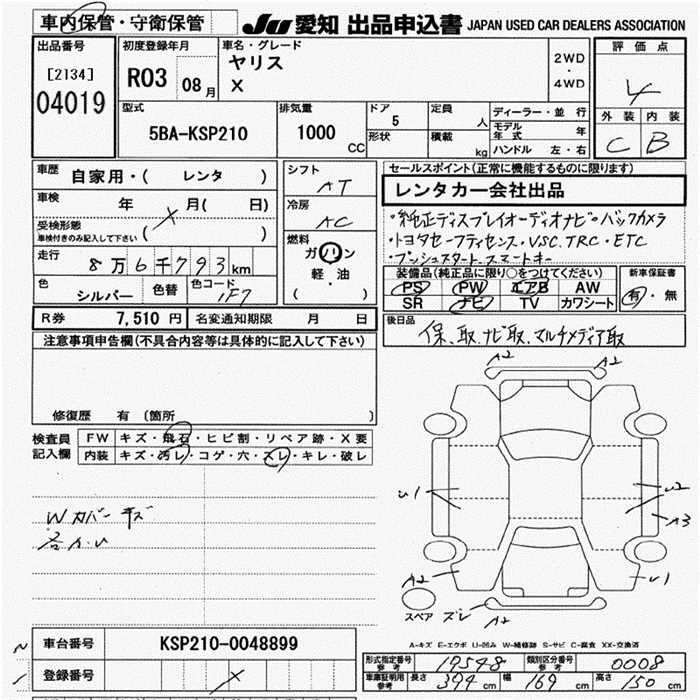 車内保管・守衛保管
JU 愛知 出品申込書 JAPAN USED CAR DEALERS ASSOCIATION
出品番号
[2134]
04019
初度登録年月
R03 08月
車名・グレード
ヤリス
X
2WD
・
4WD
評価点
4
外装 内装
C B
型式
5BA-KSP210
排気量
1000 CC
ドア 5
形状
定員 人
積載 kg
ディーラー・並行
モデル年式 年
ハンドル 左・右
車歴 自家用・( レンタ )
車検 年 月( 日)
受検形態
車検付きのみ記入して下さい ( )
走行 8万6千793km
色 シルバー 色替 色コード 1F7
シフト AT
冷房 AC
燃料
ガソリン
軽・油
( )
セールスポイント(正常に機能するものに限ります)
レンタカー会社出品
・純正ディスプレイオーディオナビ・バックカメラ
・トヨタセーフティセンス・VSC.TRC・ETC
・プッシュスタート.スマートキー
装備品(純正品に限り○をつけてください)
PS PW エアB AW
SR ナビ TV カワシート
新車保証書
有・無
R券 7,510円 名変通知期限 月 日
後日品
保、取、ナビ取、マルチメディア取
注意事項申告欄(不具合内容等は具体的に記入して下さい)
修復歴 有 〔箇所 〕
検査員記入欄
FW キズ・飛石・ヒビ割・リペア跡・X要
内装 キズ・汚レ・コゲ・穴・スレ・キレ・破レ
Wカバーキズ
各A・U
A2 A2
U1 U2
A3
A2 U1
スペア ズレ A2
A-キズ E-エクボ U-凹み W-補修跡 S-サビ C-腐食 XX-交換済
車台番号 KSP210-0048899
登録番号
形式指定番号 参考 19548 類別区分番号 参考 0008
車庫証明用 参考 長さ 394cm 幅 169cm 高さ 150cm